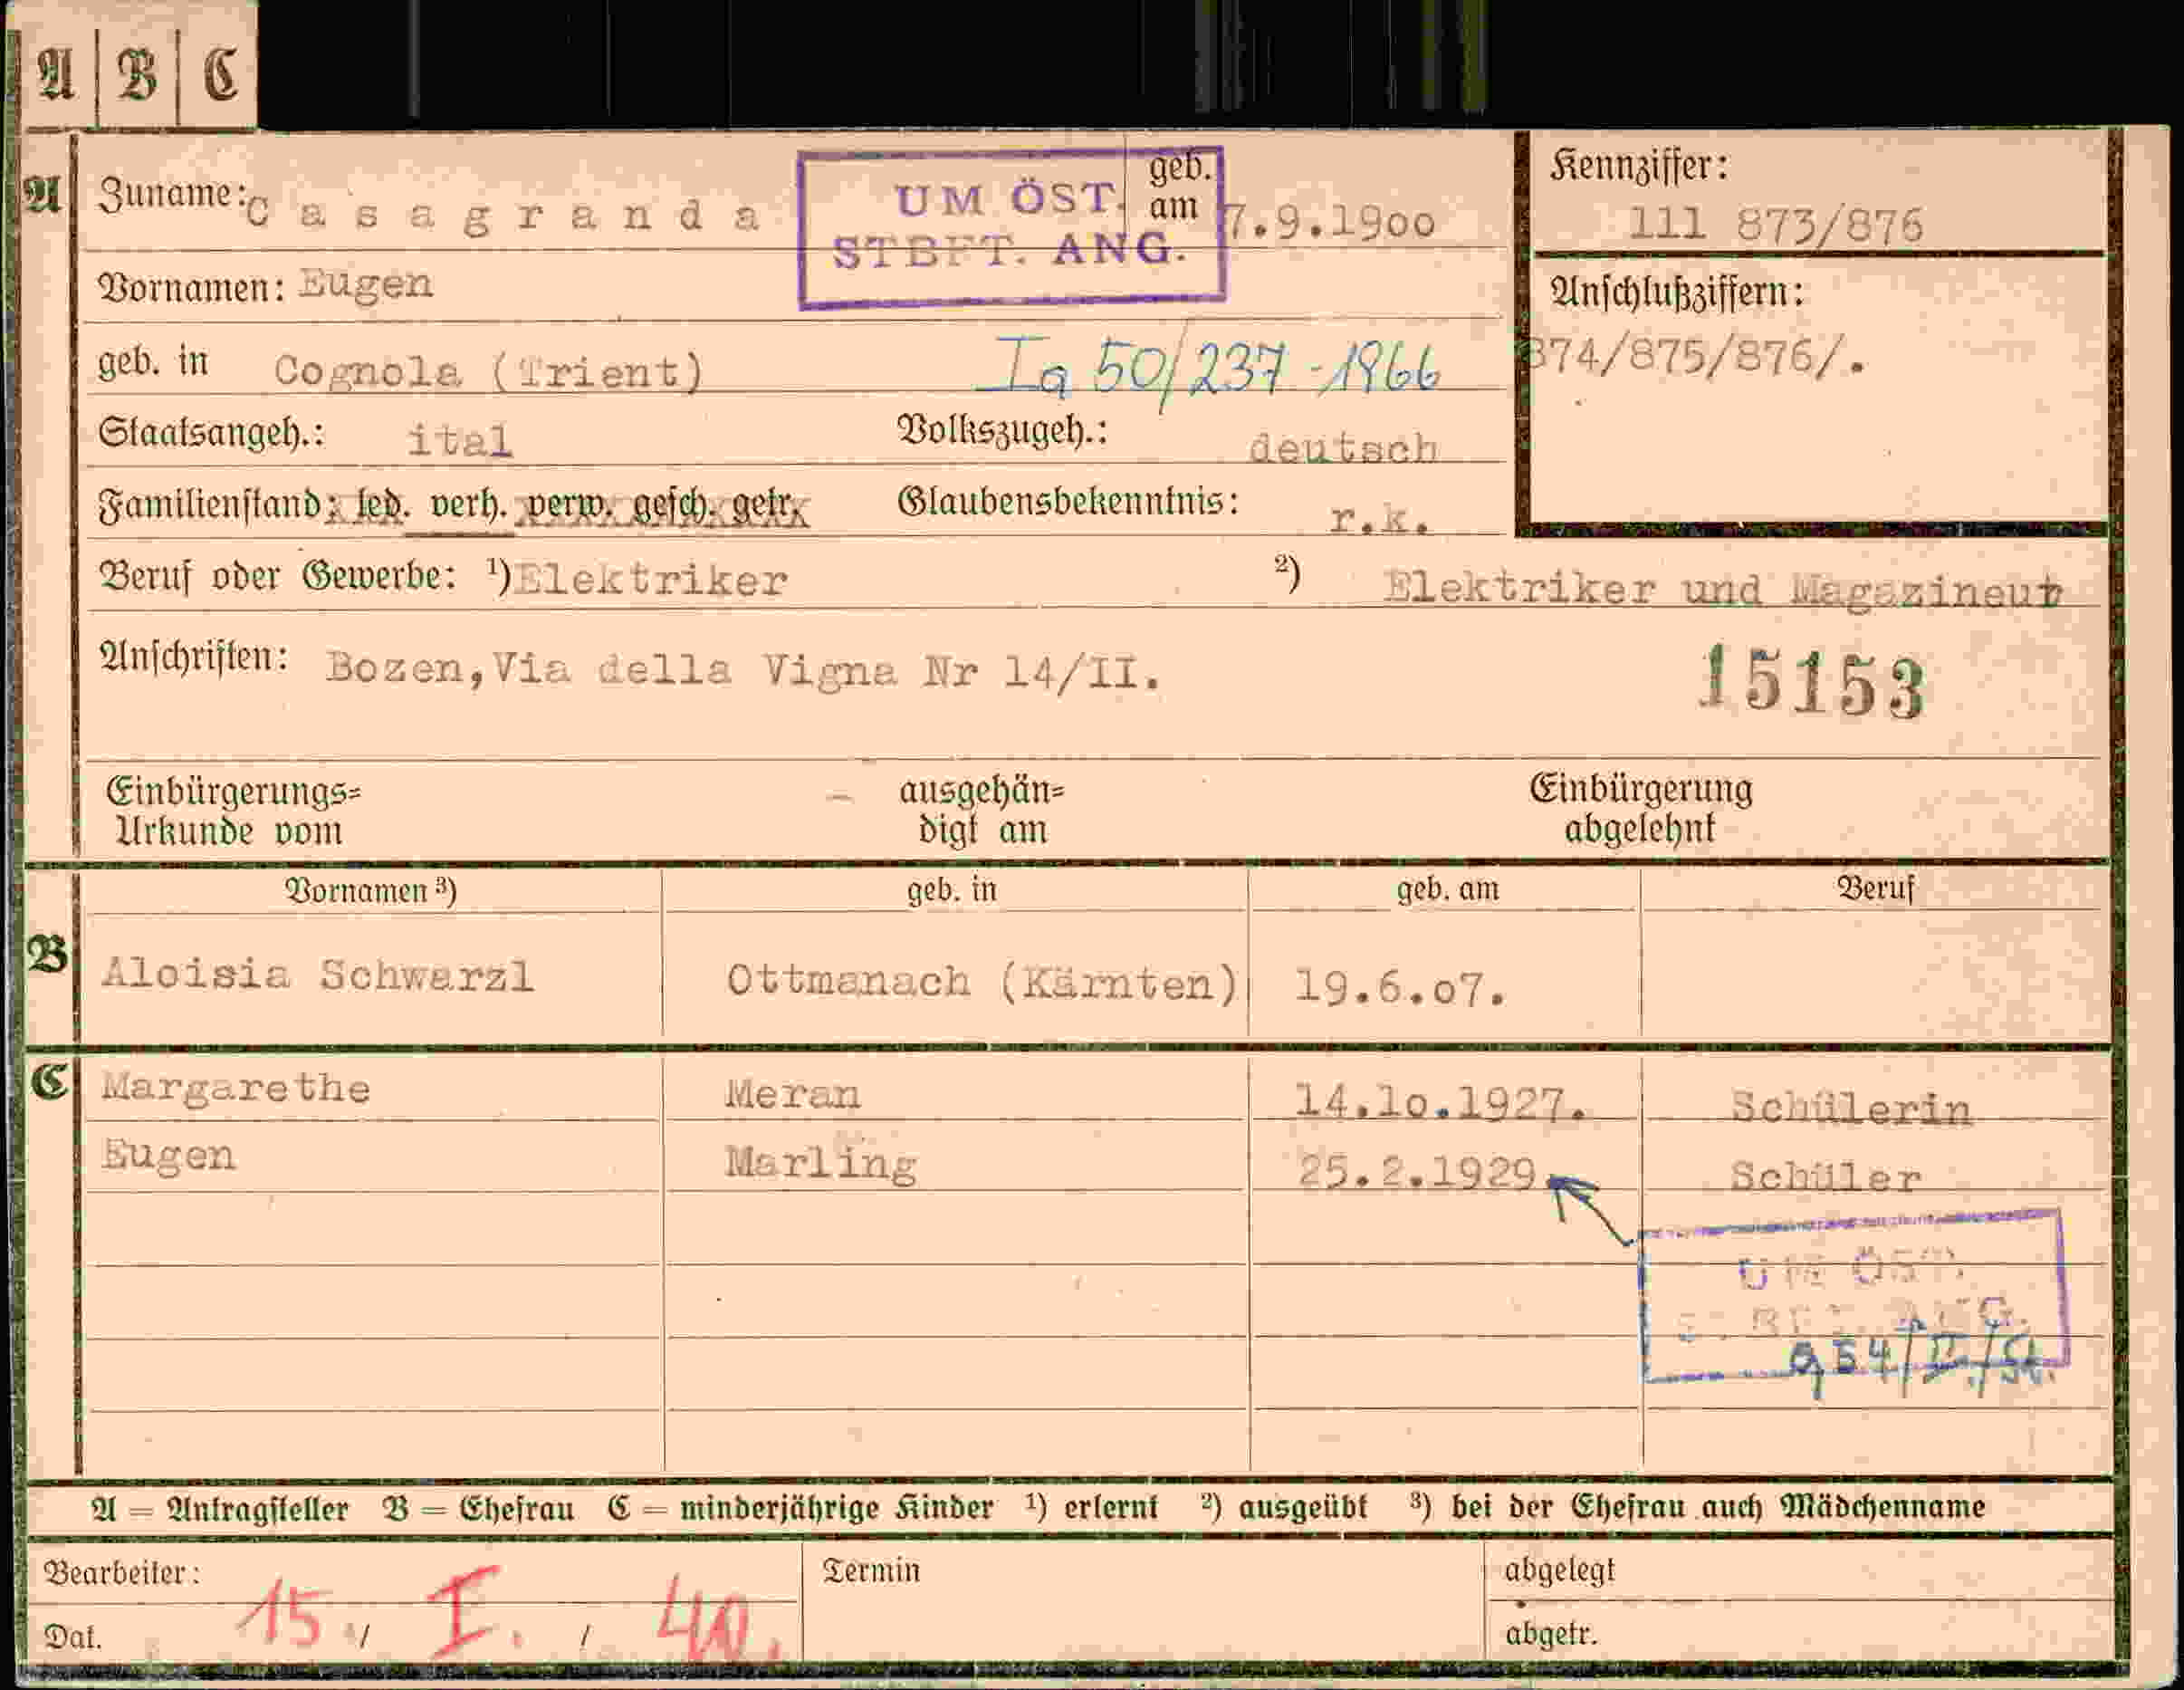 A B C
A Zuname: Casagranda geb. am 7.9.1900
UM ÖST.
STBFT. ANG.
Kennziffer:
111 873/876
Vornamen: Eugen
Anschlußziffern:
874/875/876/.
geb. in Cognola (Trient) Ia 50/237-1966
Staatsangeh.: ital Volkszugeh.: deutsch
Familienstand: led. verh. verw. gesch. getr. Glaubensbekenntnis: r.k.
Beruf oder Gewerbe: ¹) Elektriker ²) Elektriker und Magazineur
Anschriften: Bozen, Via della Vigna Nr 14/II.
15153
Einbürgerungs= Urkunde vom – ausgehän= digt am Einbürgerung abgelehnt
Vornamen ³) geb. in geb. am Beruf
B Aloisia Schwarzl Ottmanach (Kärnten) 19.6.07.
C Margarethe Meran 14.10.1927. Schülerin
Eugen Marling 25.2.1929 Schüler
UM ÖST.
ST BFT. ANG.
A = Antragsteller B = Ehefrau C = minderjährige Kinder ¹) erlernt ²) ausgeübt ³) bei der Ehefrau auch Mädchenname
Bearbeiter: Termin abgelegt
Dat. 15 / I. / 40. abgetr.